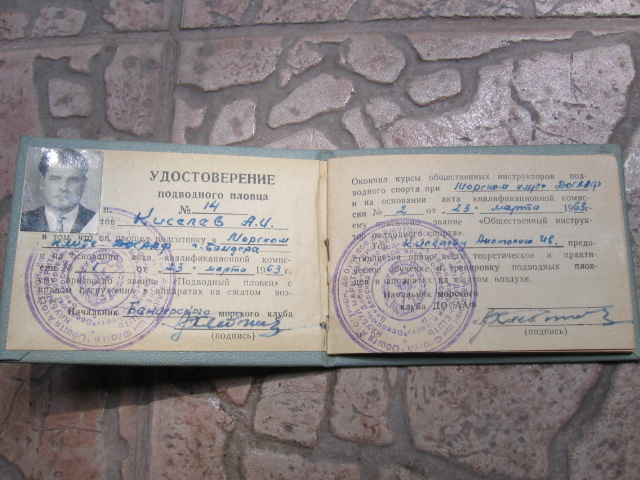 УДОСТОВЕРЕНИЕ
подводного пловца
№ 14
тов Кисалав А.И.
в том, что он прошел подготовку в Морском
клубе г. Бендера
и на основании акта квалификационной комис-
сии № от „23" марта 1963г.
ему присвоено звание «Подводный пловец с
правом погружения в аппаратах на сжатом воз-
Начальник Бандерского морского клуба
(подпись)
Окончил курсы общественных инструкторов под-
водного спорта при Морском клубе ДОСААФ
и на основании акта квалификационной комис-
сии № 2 от „23" марта 1963г.
ему присвоено звание «Общественный инструк-
тор подводного спорта».
Тов. Кисалеву Анатолию Ив. предо-
ставляется право вести теоретическое и практи-
ческое обучение и тренировку подводных плов-
цов в аппаратах на сжатом воздухе.
Начальник морского
клуба ДОСААФ
(подпись)